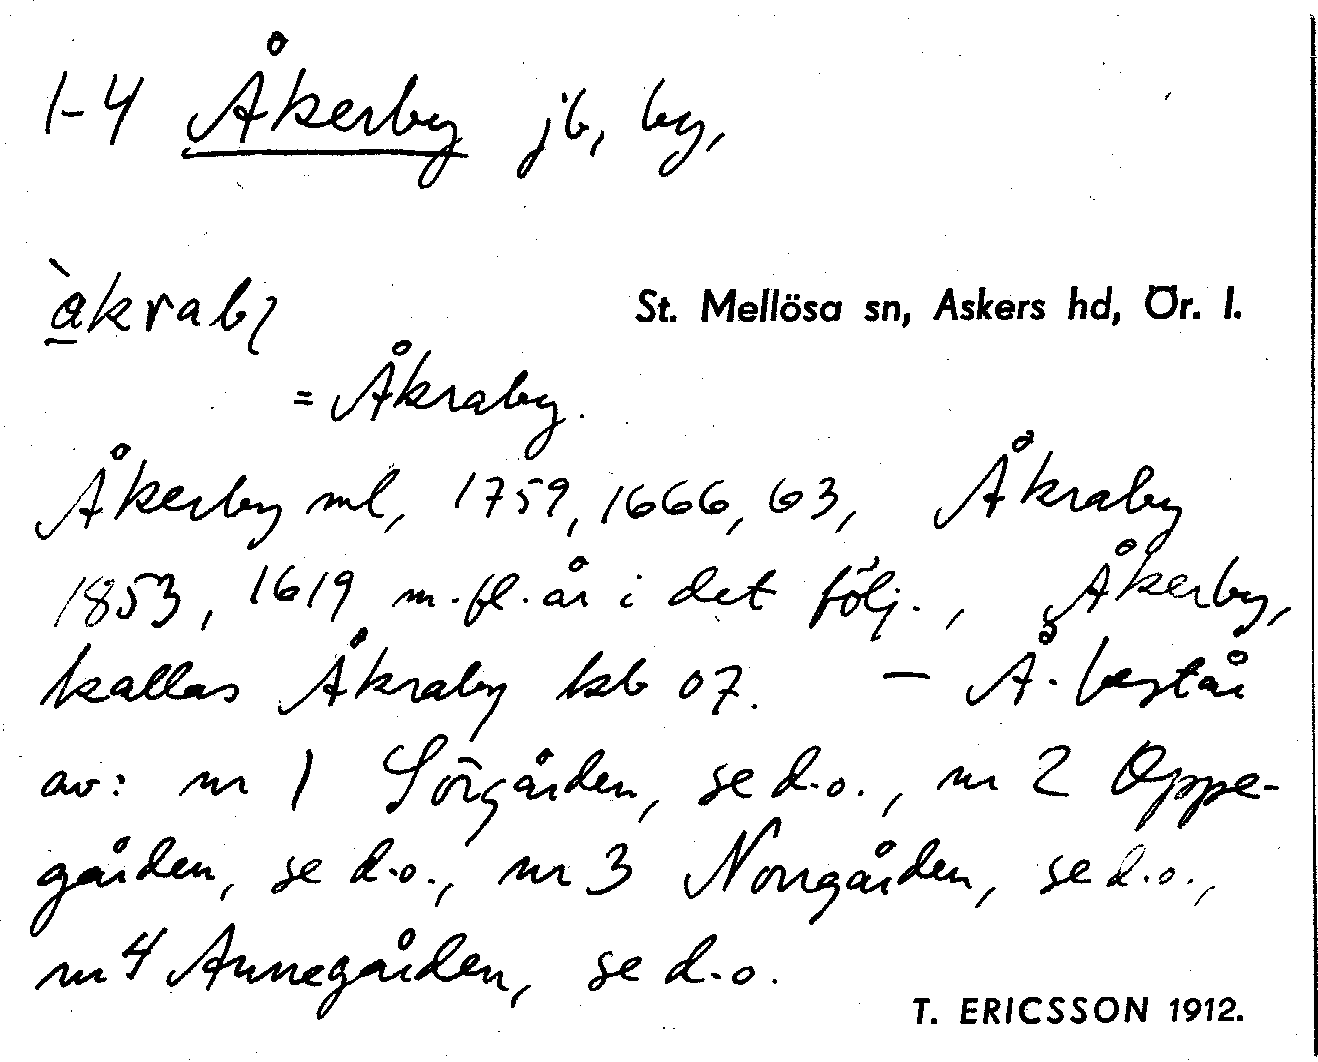 1-4 Åkerby jb, by,
àkrabɩ
St. Mellösa sn, Askers hd, Ör. l.
= Åkraby.
Åkerby ml, 1759, 1666, 63, Åkraby
1853, 1619 m.fl. år i det följ., Åkerby,
kallas Åkraby kb 07. — Å. består
av: nr 1 Sörgården, se d.o., nr 2 Oppe-
gården, se d.o., nr 3 Norrgården, se d.o.,
nr 4 Annegården, se d.o.
T. ERICSSON 1912.